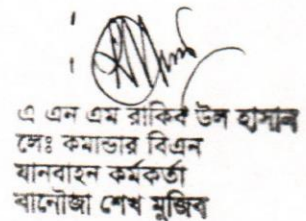 এ এন এম রাকিব উল হাসান
লেঃ কমান্ডার বিএন
যানবাহন কর্মকর্তা
বানৌজা শেখ মুজিব